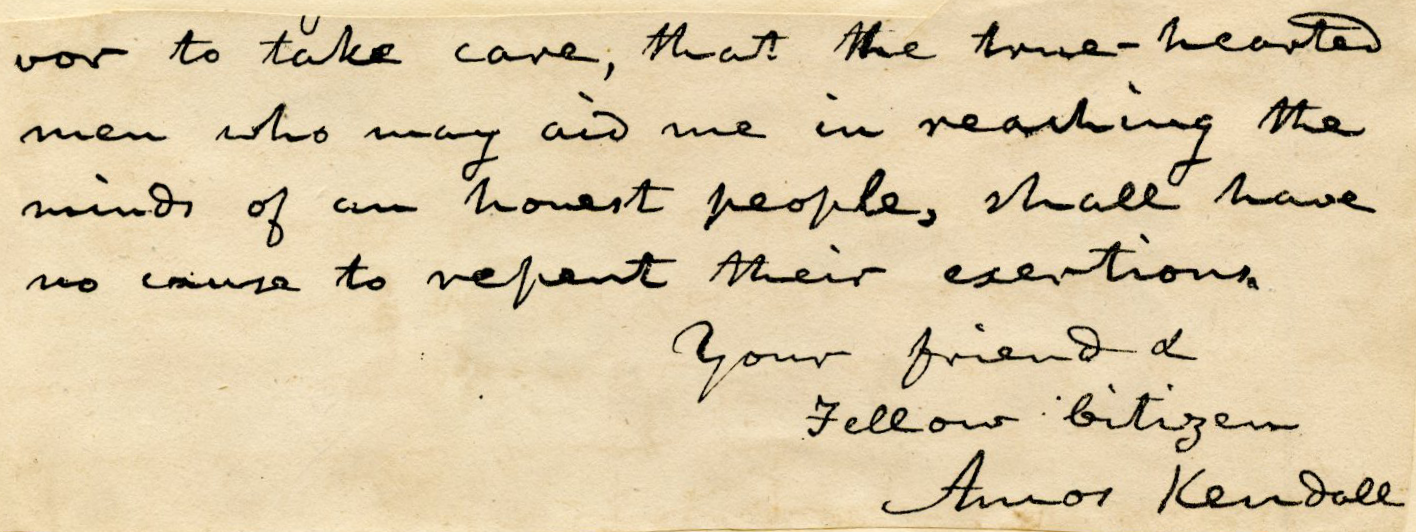 vor to take care, that the true-hearted
men who may aid me in reaching the
minds of an honest people, shall have
no cause to repent their exertions.
Your friend &
Fellow Citizen
Amos Kendall